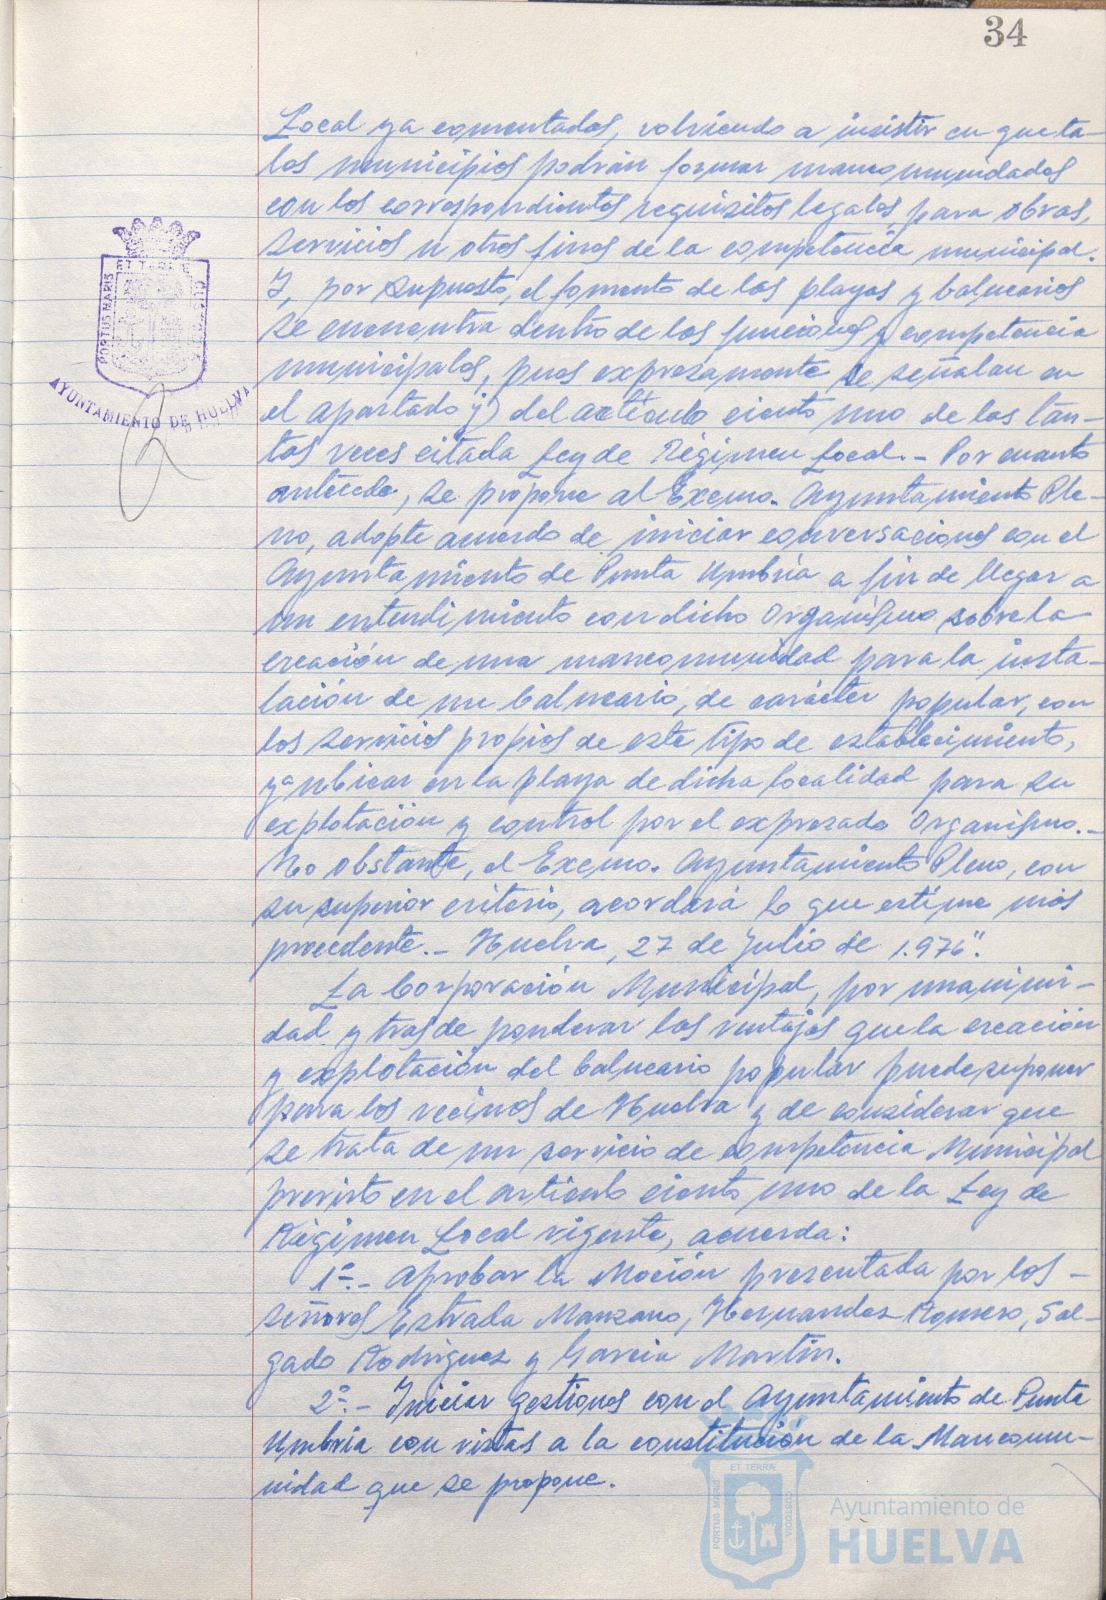 34
Local ya comentados, volviendo a insistir en que ta-
les municipios podrán formar mancomunidades
con los correspondientes requisitos legales para obras,
servicios u otros fines de la competencia municipal.
Y, por supuesto, el fomento de las playas y balnearios
se encuentra dentro de las funciones y competencia
municipales, pues expresamente se señalan en
el apartado j) del artículo ciento uno de las tan-
tas veces citada Ley de Régimen Local.- Por cuanto
antecede, se propone al Excmo. Ayuntamiento Ple-
no, adopte acuerdo de iniciar conversaciones con el
Ayuntamiento de Punta Umbría a fin de llegar a
un entendimiento con dicho Organismo sobre la
creación de una mancomunidad para la insta-
lación de un balneario, de carácter popular, con
los servicios propios de este tipo de establecimiento,
y a ubicar en la playa de dicha localidad para su
explotación y control por el expresado Organismo.-
No obstante, el Excmo. Ayuntamiento Pleno, con
su superior criterio, acordará lo que estime más
procedente.- Huelva, 27 de Julio de 1.976".
La Corporación Municipal, por unanimi-
dad y tras de ponderar las ventajas que la creación
y explotación del balneario popular puede suponer
para los vecinos de Huelva y de considerar que
se trata de un servicio de competencia Municipal
previsto en el artículo ciento uno de la Ley de
Régimen Local vigente, acuerda:
1º.- Aprobar la Moción presentada por los -
señores Estrada Manzano, Hernandez Romero, Sal-
gado Rodriguez y Garcia Martín.
2º.- Iniciar gestiones con el Ayuntamiento de Punta
Umbría con vistas a la constitución de la Mancomu-
nidad que se propone.
ET TERRÆ
PORTUS MARIS
AYUNTAMIENTO DE HUELVA
ET TERRÆ
PORTUS MARIS
CUSTODIA
Ayuntamiento de
HUELVA